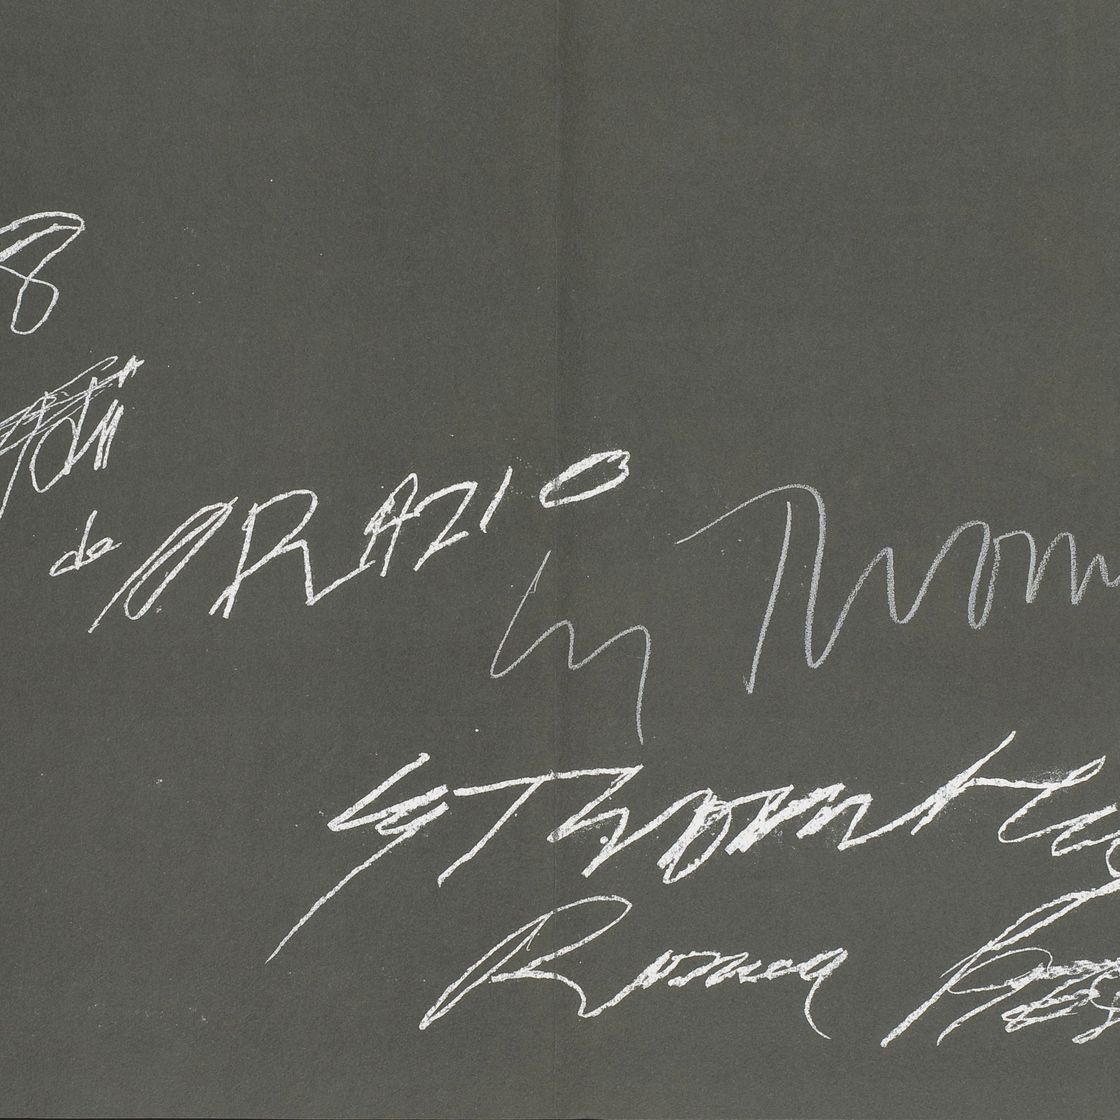 8
de ORAZIO
Cy Twom
Cy Twombly
Roma